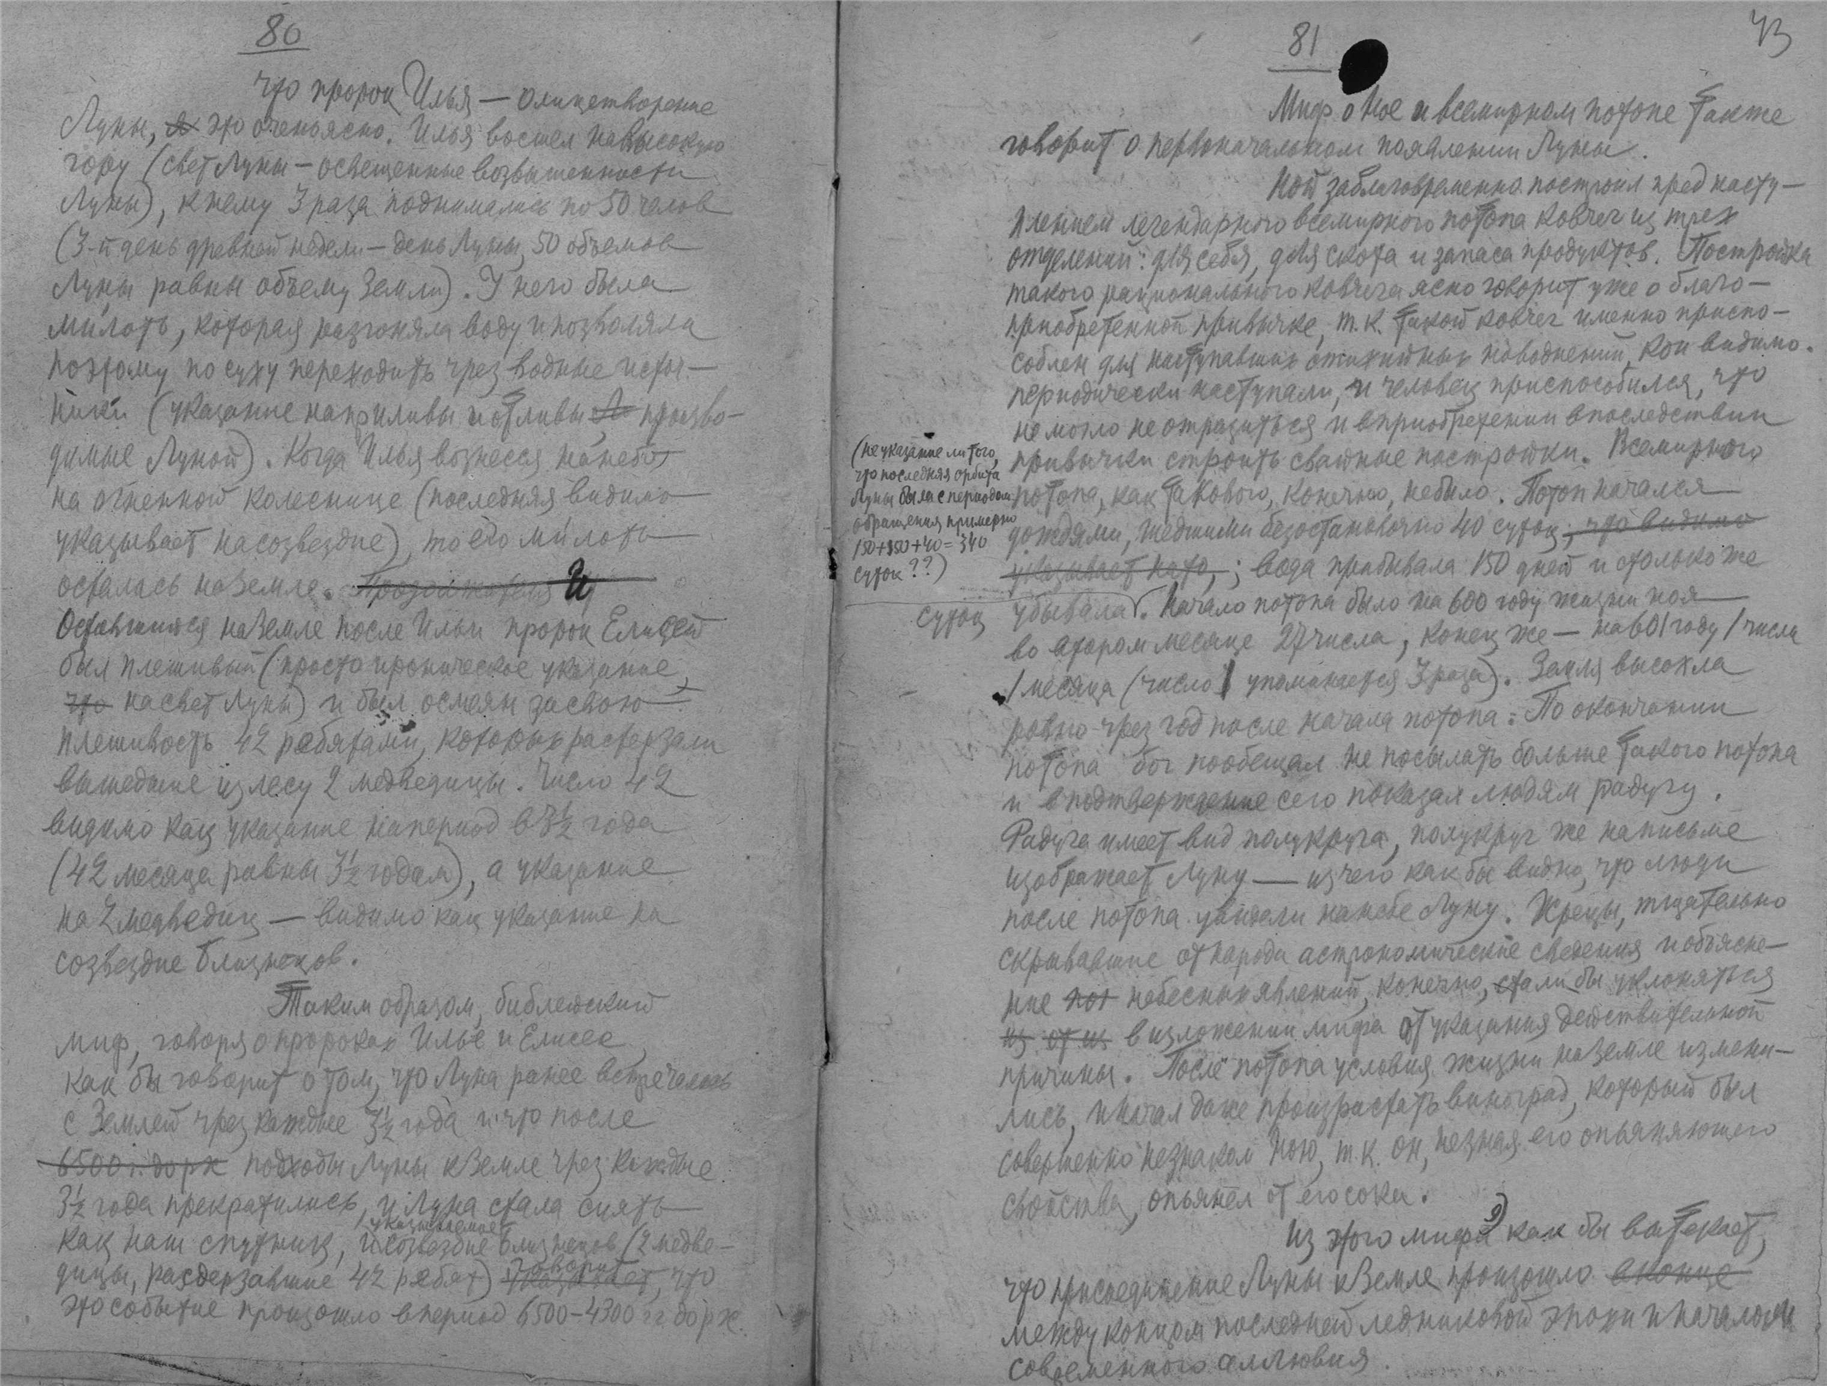 80
Что пророк Илья — олицетворение
Луны, это очень ясно. Илья восшел на высокую
гору (свет Луны — освещенные возвышенности
Луны), к нему 3 раза поднимались по 50 челов
(3-й день древней недели — день Луны, 50 объемов
Луны равны объему Земли). У него была
милоть, которая разгоняла воду и позволяла
поэтому по суху переходить чрез водные источ—
ники (указание на приливы и отливы, произво—
димые Луной). Когда Илья вознесся на небо
на огненной колеснице (последняя видимо
указывает на созвездие), то его милоть
осталась на Земле. И
Оставшийся на Земле после Ильи пророк Елисей
был плешивый (просто ироническое указание
что на свет Луны) и был осмеян за свою
плешивость 42 ребятами, которых растерзали
вышедшие из лесу 2 медведицы. Число 42
видимо как указание на период в 3½ года
(42 месяца равны 3½ годам), а указание
на 2 медведиц — видимо как указание на
созвездие Близнецов.
Таким образом, библейский
миф, говоря о пророках Илье и Елисее,
как бы говорит о том, что Луна ранее встречалась
с Землей чрез каждые 3½ года и что после
6500 г. до р х подходы Луны к Земле чрез каждые
3½ года прекратились, и Луна стала сиять
как наш спутник, и указываемое созвездие Близнецов (2 медве—
дицы, растерзавшие 42 ребят) говорит, что
это событие произошло в период 6500–4300 гг до р х.
81
43
Миф о Ное и всемирном потопе также
говорит о первоначальном появлении Луны.
Ной заблаговременно построил пред насту—
плением легендарного всемирного потопа ковчег из трех
отделений: для себя, для скота и запаса продуктов. Постройка
такого рационального ковчега ясно говорит уже о благо—
приобретенной привычке, т.к. такой ковчег именно приспо—
соблен для наступавших стихийных наводнений, кои видимо
периодически наступали, и человек приспособился, что
не могло не отразиться и в приобретении впоследствии
привычки строить свайные постройки. Всемирного
потопа, как такового, конечно, не было. Потоп начался
дождями, шедшими безостановочно 40 суток, что видимо
указывает на то, ; вода прибывала 150 дней и столько же
суток убывала. Начало потопа было на 600 году жизни Ноя
(не указание ли того,
что последняя орбита
Луны была с периодом
обращения примерно
150+150+40=340
суток??)
во втором месяце 27 числа, конец же — на 601 году 1 числа
1 месяца (число 1 упоминается 3 раза). Земля высохла
ровно чрез год после начала потопа. По окончании
потопа бог пообещал не посылать больше такого потопа
и в подтверждение сего показал людям радугу.
Радуга имеет вид полукруга, полукруг же на письме
изображает Луну — из чего как бы видно, что люди
после потопа увидели на небе Луну. Жрецы, тщательно
скрывавшие от народа астрономические сведения и объясне—
ние небесных явлений, конечно, стали бы уклоняться
из от из в изложении мифа от указания действительной
причины. После потопа условия жизни на Земле измени—
лись, и начал даже произрастать виноград, который был
совершенно незнаком Ною, т.к. он, не зная его опьяняющего
свойства, опьянел от его сока.
Из этого мифа 9) как бы вытекает,
что присоединение Луны к Земле произошло в конце
между концом последней ледниковой эпохи и началом
современного аллювия.